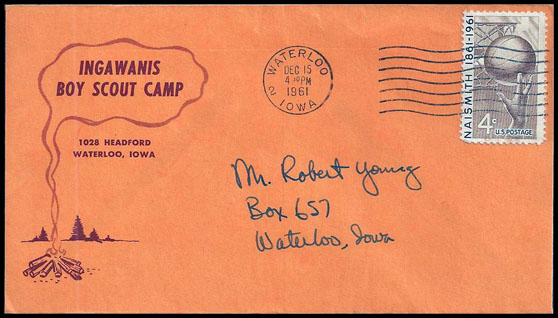 INGAWANIS
BOY SCOUT CAMP
1028 HEADFORD
WATERLOO, IOWA
WATERLOO
DEC 15
PM
1961
2
IOWA
NAISMITH 1861-1961
4c
U.S. POSTAGE
Mr. Robert Young
Box 657
Waterloo, Iowa